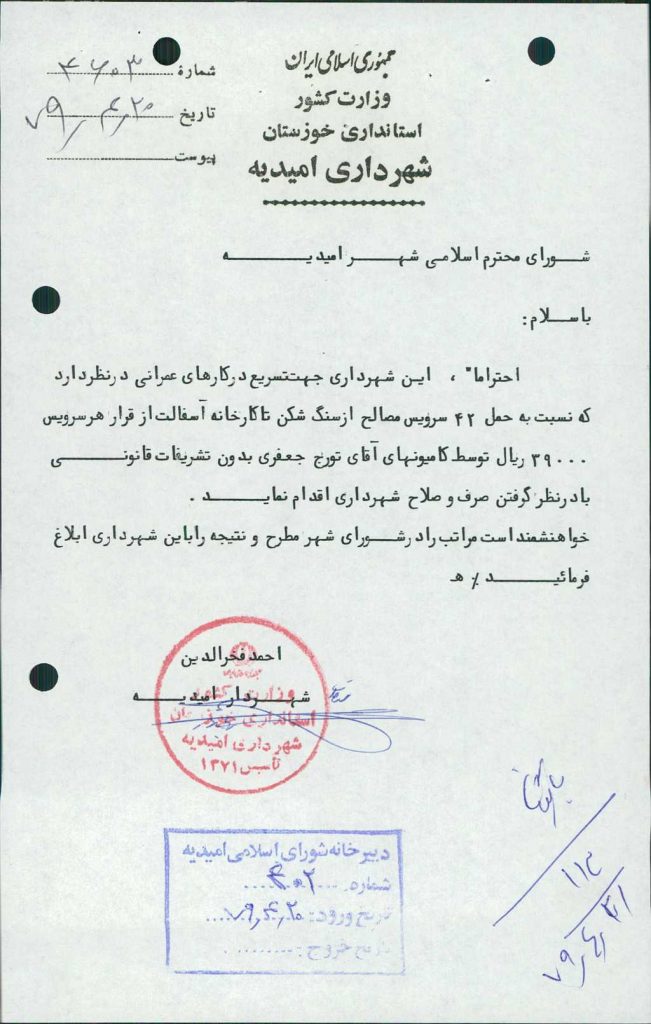 جمهوری اسلامی ایران
وزارت کشور
استانداری خوزستان
شهرداری امیدیه
شماره ۴۶۰۳
تاریخ ۷۹٫۴٫۲۰
پیوست
شورای محترم اسلامی شهر امیدیه
باسلام:
احتراما"، این شهرداری جهت تسریع درکارهای عمرانی درنظردارد
که نسبت به حمل ۴۲ سرویس مصالح ازسنگ شکن تاکارخانه آسفالت از قرار هرسرویس
۳۹۰۰۰ ریال توسط کامیونهای آقای تورج جعفری بدون تشریفات قانونی
بادرنظر گرفتن صرف و صلاح شهرداری اقدام نماید.
خواهشمنداست مراتب رادرشورای شهر مطرح و نتیجه راباین شهرداری ابلاغ
فرمائید٪ ه
احمد فخرالدین
شهردار امیدیه
وزارت کشور
استانداری خوزستان
شهرداری امیدیه
تاسیس ۱۳۷۱
دبیرخانه شورای اسلامی امیدیه
شماره: ۴۰۲
تاریخ ورود: ۷۹٫۴٫۲۰
تاریخ خروج:
۱۱۳